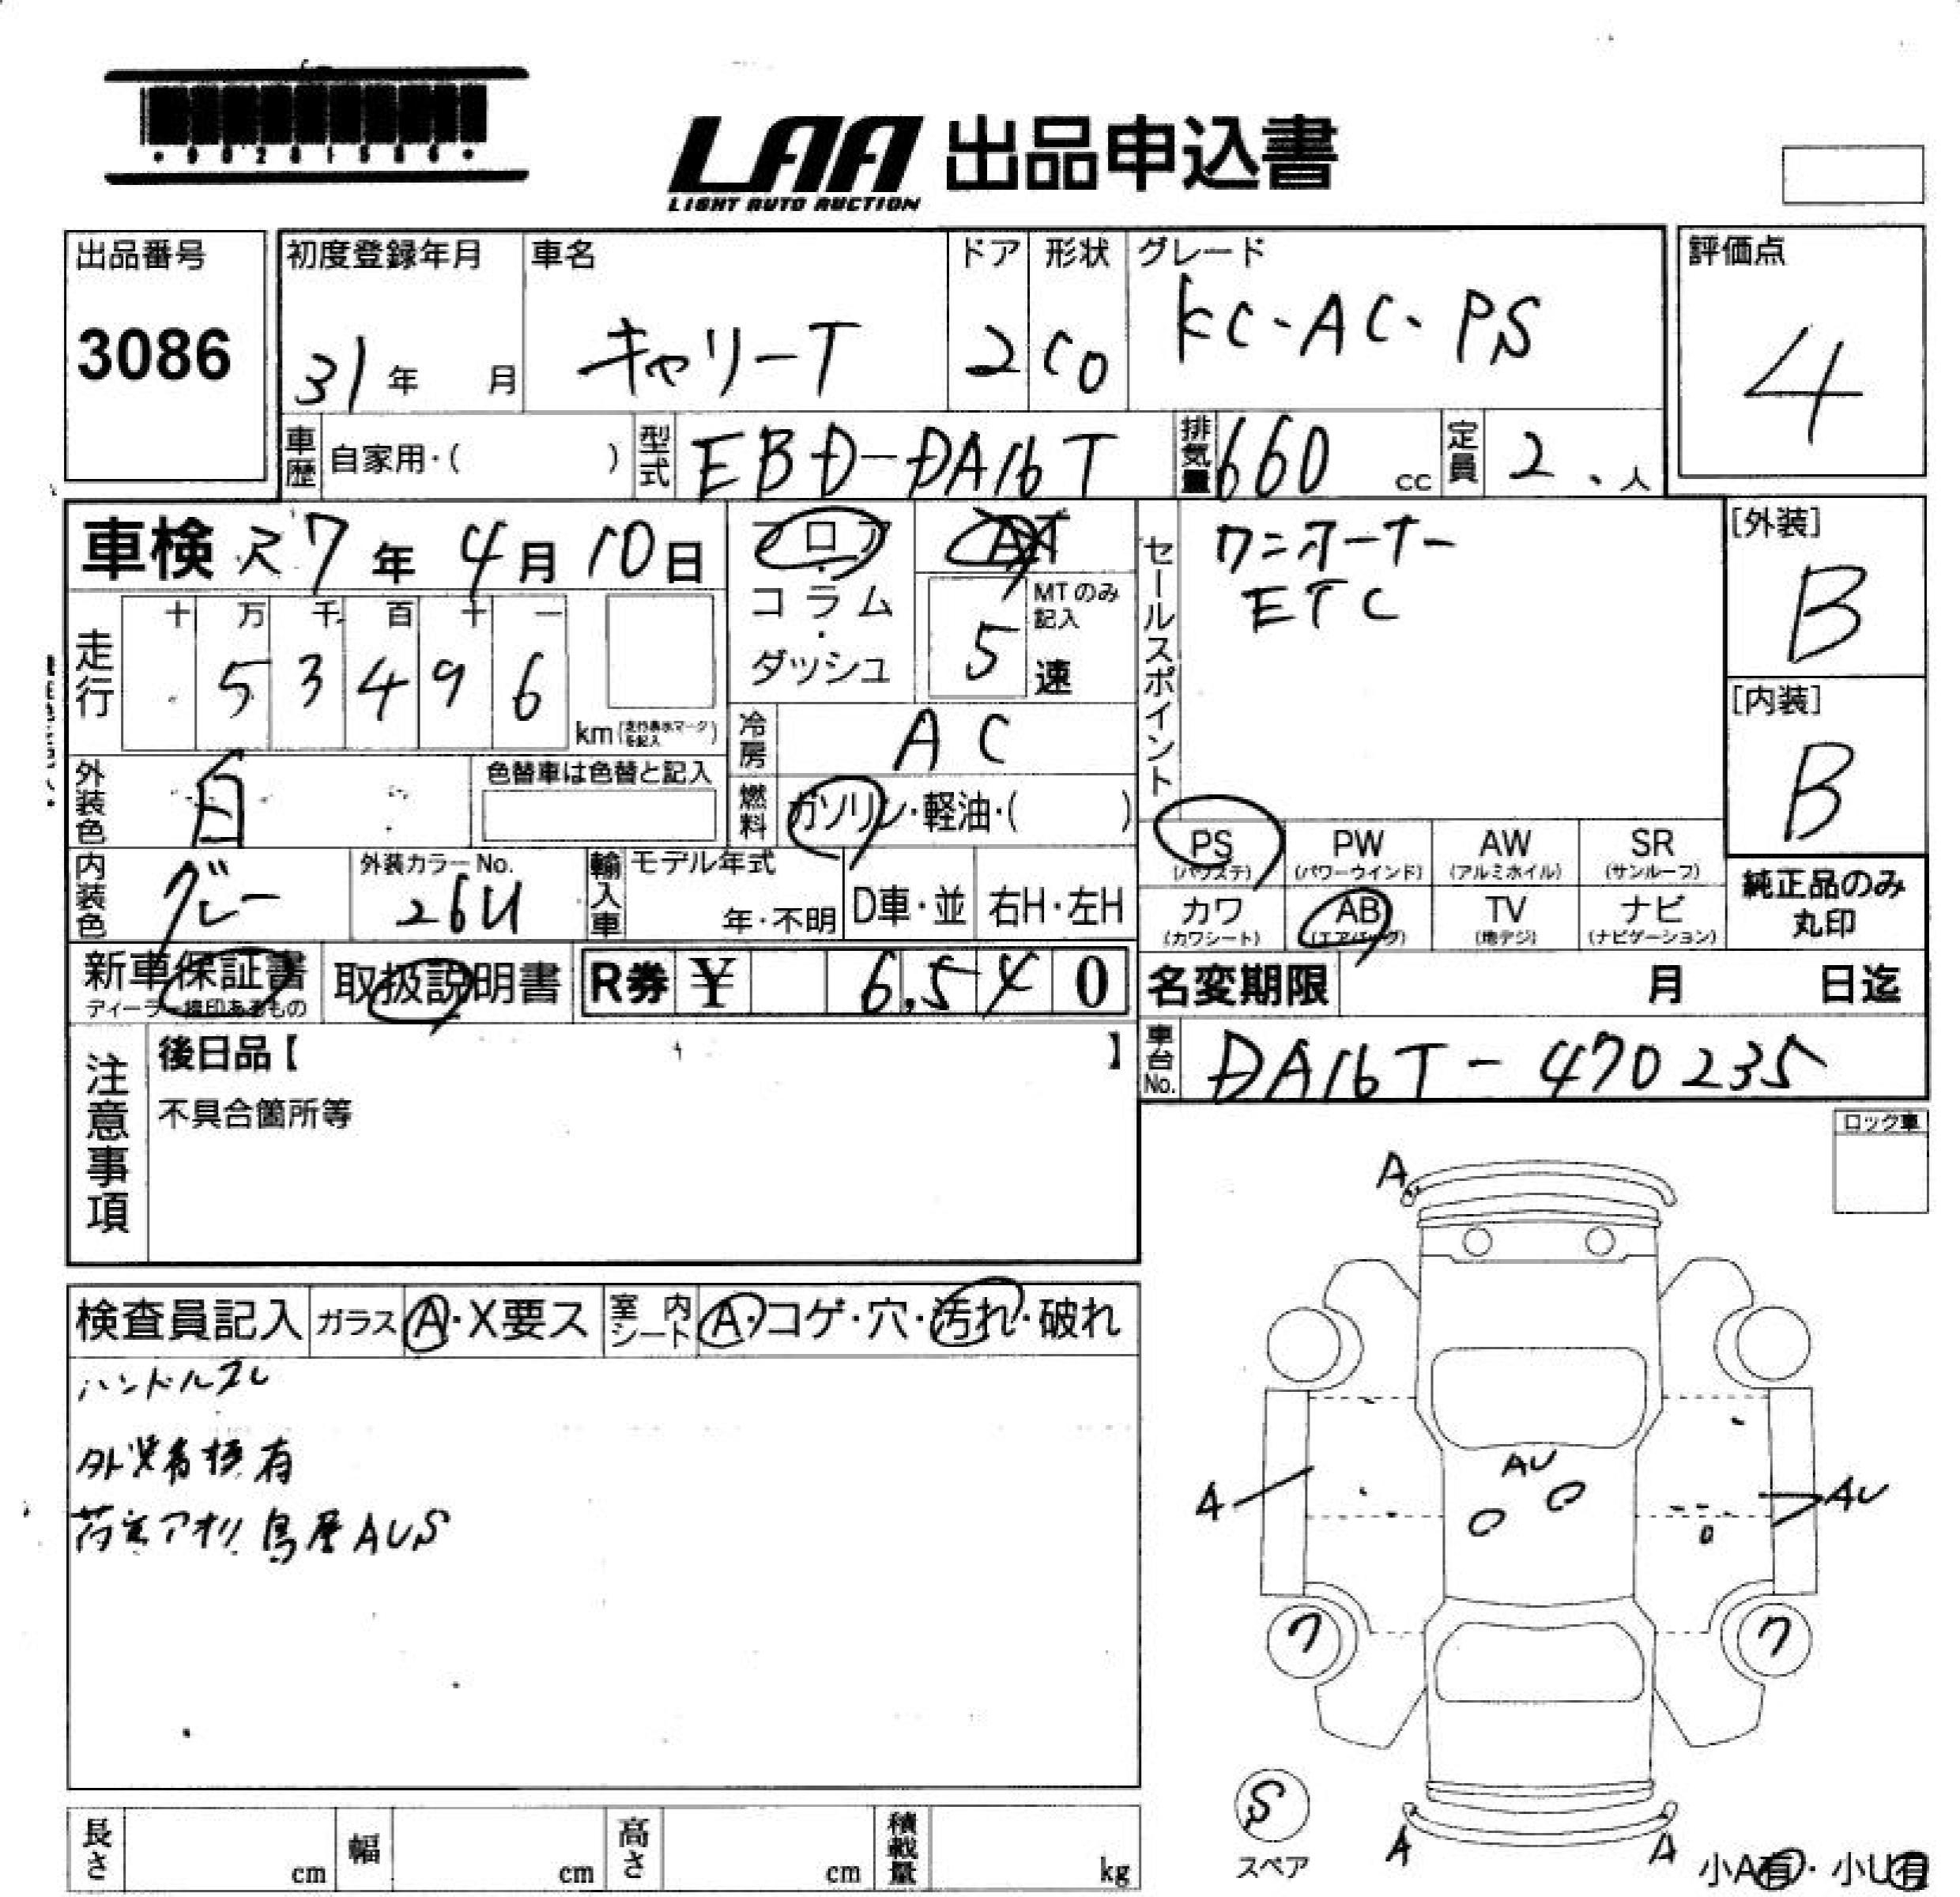 *90281586*
LAA 出品申込書
LIGHT AUTO AUCTION
出品番号
3086
初度登録年月
31年 月
車名
キャリーT
ドア
2
形状
CO
グレード
KC-AC-PS
評価点
4
車歴 自家用・( )
型式 EBD-DA16T
排気量 660 cc
定員 2 人
車検 R7年 4月 10日
フロア・コラム・ダッシュ
AT
MTのみ記入
5 速
走行
十 万 千 百 十 一
5 3 4 9 6
km
冷房 AC
燃料 ガソリン・軽油・( )
外装色 白
色替車は色替と記入
内装色 グレー
外装カラーNo.
26U
輸入車
モデル年式
年・不明
D車・並
右H・左H
セールスポイント
ワンオーナー
ETC
[外装]
B
[内装]
B
PS PW AW SR
(パワステ) (パワーウインド) (アルミホイル) (サンルーフ)
カワ AB TV ナビ
(カワシート) (エアバック) (地デジ) (ナビゲーション)
純正品のみ
丸印
新車保証書
取扱説明書
R券 ¥ 6,540
名変期限 月 日迄
車台No. DA16T-470235
注意事項
後日品【 】
不具合箇所等
ロック車
検査員記入
ガラス A・X要ス
室内シート A・コゲ・穴・汚れ・破れ
ハンドルスレ
外装看板有
AUS
A
AU
A
AU
ワ
ワ
S
スペア
A
A
小A有・小U有
長さ cm
幅 cm
高さ cm
積載量 kg